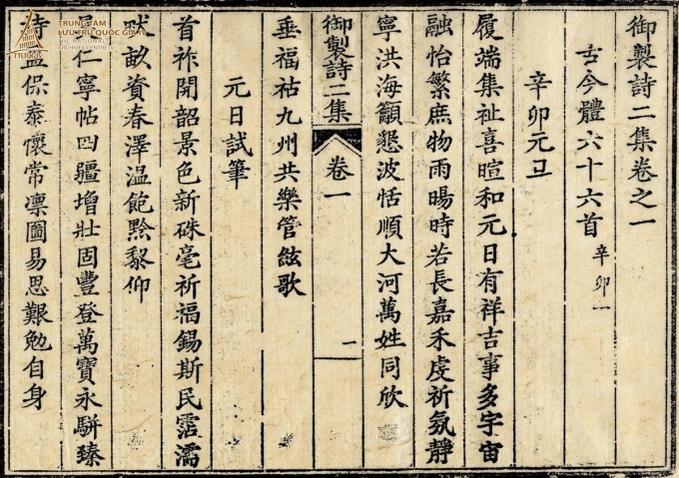 TRUNG TÂM
LƯU TRỮ QUỐC GIA IV
御製詩二集卷之一
古今體六十六首 辛卯一
辛卯元旦
履端集祉喜暄和元日有祥吉事多宇宙
融怡繁庶物雨暘時若長嘉禾虔祈氛靜
寧洪海籲懇波恬順大河萬姓同欣
御製詩二集 卷一 一
垂福祜九州共樂管絃歌
元日試筆
首祚開韶景色新硃毫祈福錫斯民霑濡
畎畝資春澤温飽黔黎仰
仁寧帖四疆增壯固豐登萬寶永駢臻
持盈保泰懷常凜圖易思艱勉自身